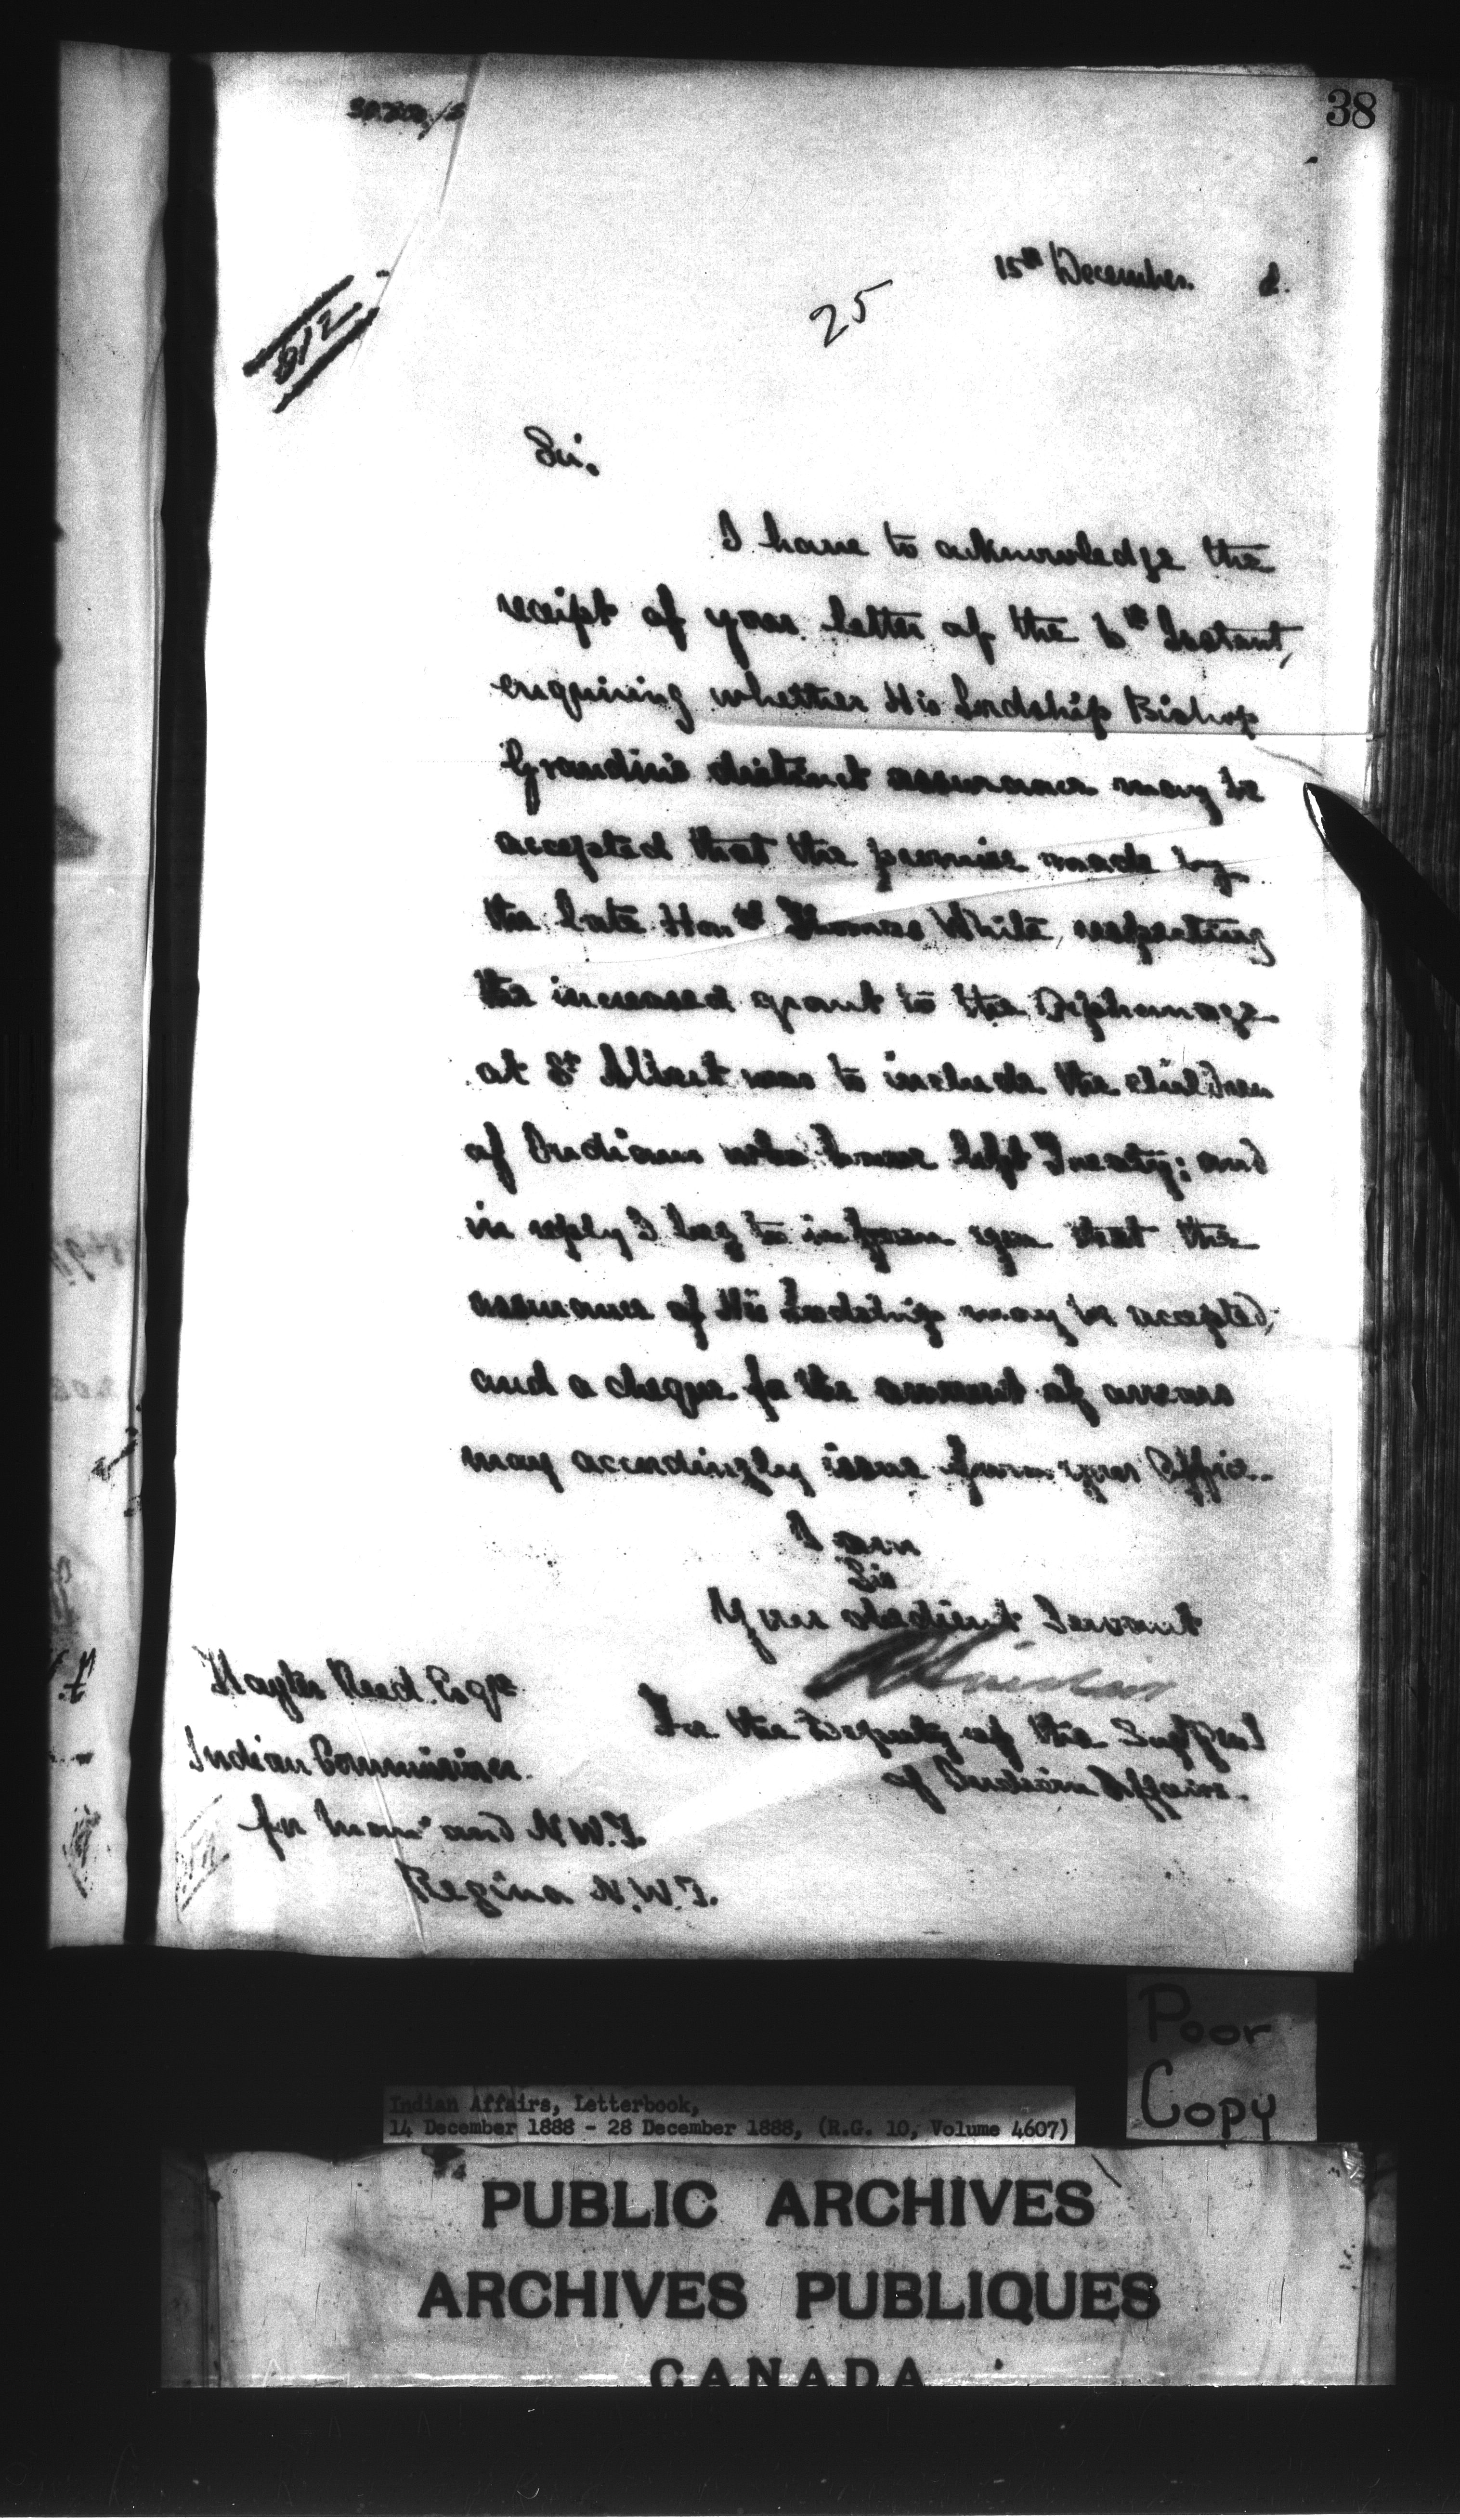 38
15th December. 8.
25
812
Sir,
I have to acknowledge the
receipt of your letter of the 6th Instant,
enquiring whether His Lordship Bishop
Grandin's distinct assurance may be
accepted that the promise made by
the late Honble Thomas White, respecting
the increased grant to the Orphanage
at St Albert was to include the children
of Indians who have left Treaty; and
in reply I beg to inform you that the
assurance of His Lordship may be accepted,
and a cheque for the amount of arrears
may accordingly issue from your Office.
I am
Sir
Your obedient Servant
For the Deputy of the Supt Genl
of Indian Affairs.
Hayter Reed Esqre
Indian Commissioner
for Man. and N.W.T.
Regina N.W.T.
Poor
Copy
Indian Affairs, Letterbook,
14 December 1888 - 28 December 1888, (R.G. 10, Volume 4607)
PUBLIC ARCHIVES
ARCHIVES PUBLIQUES
CANADA